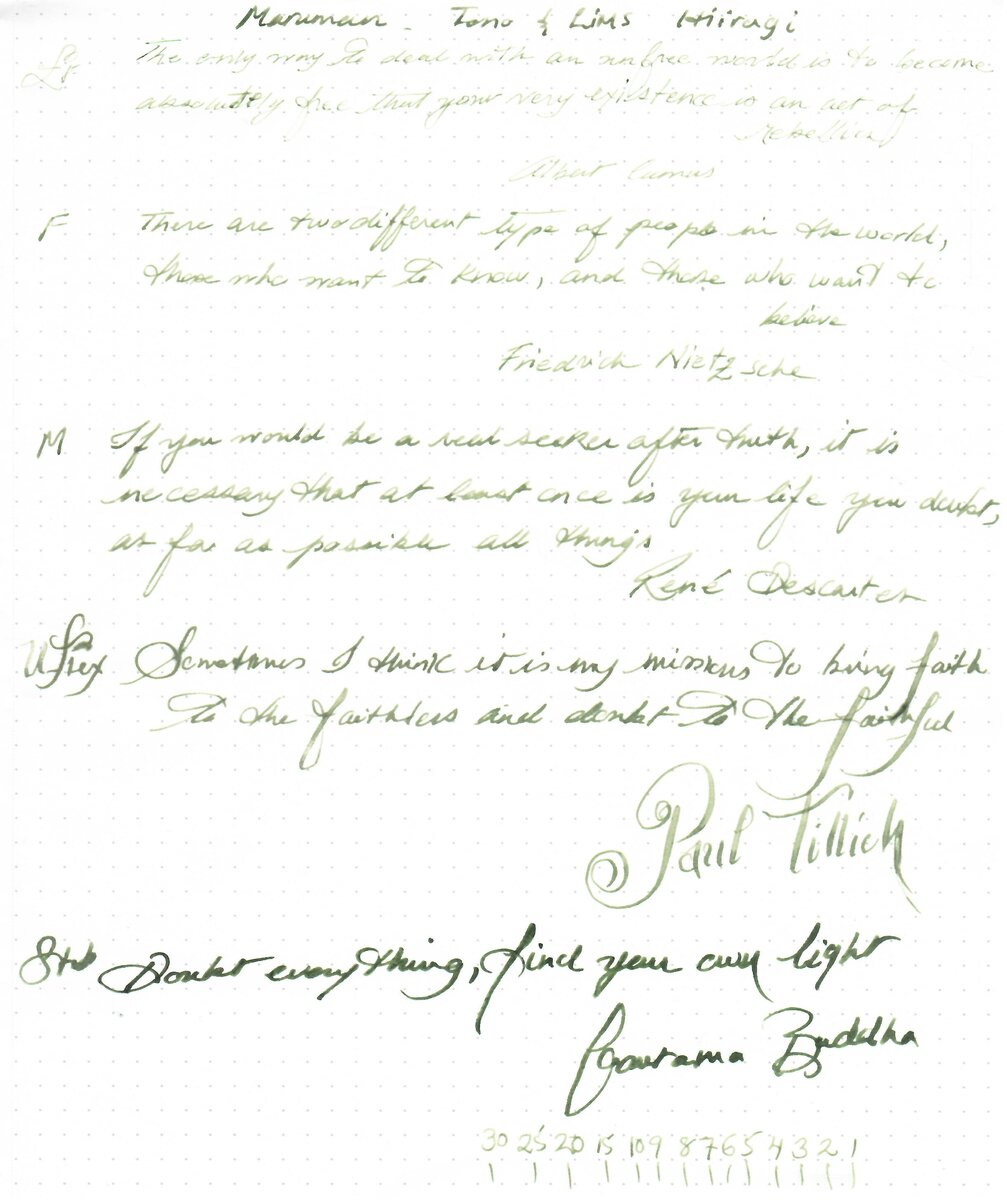 Maruman - Tono & Lims Hiiragi
Ef The only way to deal with an unfree world is to become
absolutely free that your very existence is an act of
rebellion
Albert Camus
F There are two different type of people in the world,
those who want to know, and those who want to
believe
Friedrich Nietzsche
M If you would be a real seeker after truth, it is
necessary that at least once is your life you doubt,
as far as possible all things
René Descartes
Uflex Sometimes I think it is my missions to bring faith
to the faithless and doubt to the faithful
Paul Tillich
Stub Doubt everything, find your own light
Gautama Buddha
30 25 20 15 10 9 8 7 6 5 4 3 2 1